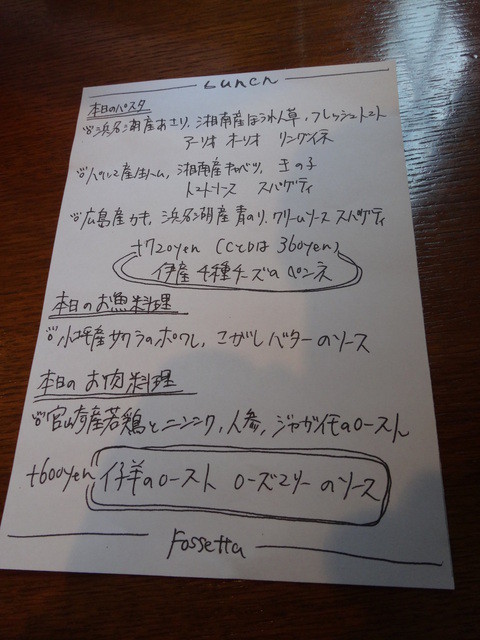 Lunch
本日のパスタ
浜名湖産あさり、湘南産ほうれん草、フレッシュトマト
アーリオ オーリオ リングイネ
パルマ産生ハム、湘南産キャベツ、玉の子
トマトソース スパゲティ
広島産カキ、浜名湖産青のり、クリームソース スパゲティ
+720yen (CとDは 360yen)
伊産4種チーズのペンネ
本日のお魚料理
小坪産サワラのポワレ、こがしバターのソース
本日のお肉料理
宮崎産若鶏とニンニク、人参、ジャガイモのロースト
+600yen 仔羊のロースト ローズマリーのソース
Fossetta